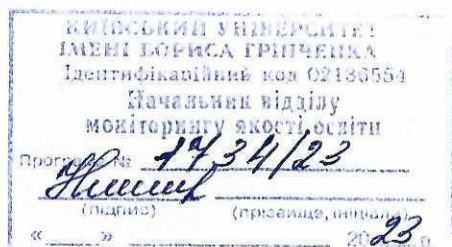 КИЇВСЬКИЙ УНІВЕРСИТЕТ
ІМЕНІ БОРИСА ГРІНЧЕНКА
Ідентифікаційний код 02136554
Начальник відділу
моніторингу якості освіти
Програма № 1734/23
(підпис) (прізвище, ініціали)
« » 2023 р.